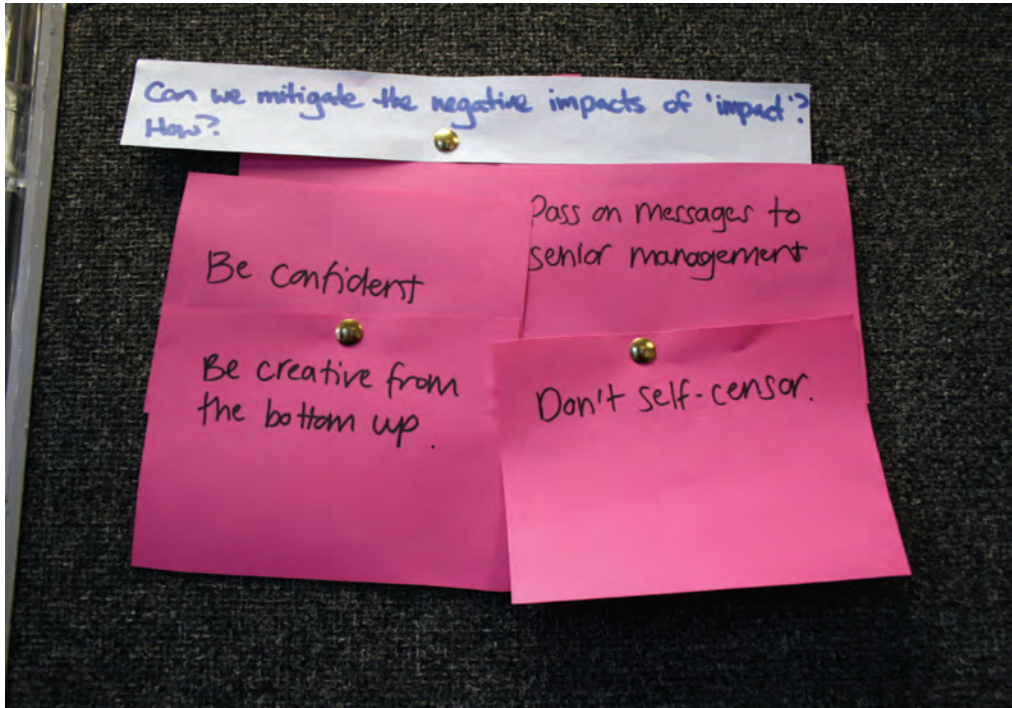 Can we mitigate the negative impacts of 'impact'?
How?
Be confident
Pass on messages to
senior management
Be creative from
the bottom up.
Don't self-censor.